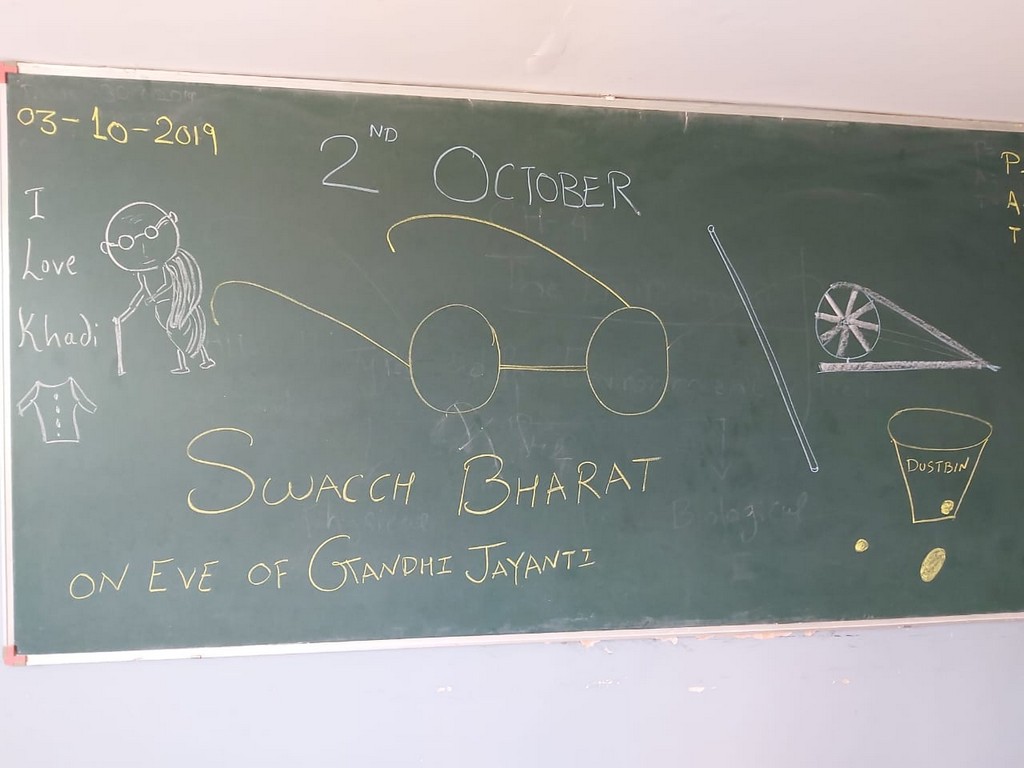 03-10-2019
2ND OCTOBER
P
A
T
I
Love
Khadi
DUSTBIN
SWACCH BHARAT
ON EVE OF GANDHI JAYANTI
Biological